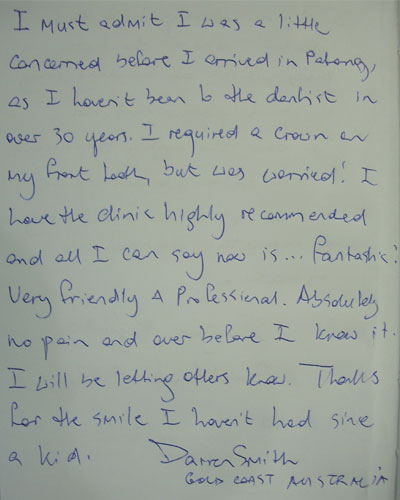 I must admit I was a little
concerned before I arrived in Patong,
as I haven't been to the dentist in
over 30 years. I required a crown on
my front tooth, but was worried! I
have the clinic highly recommended
and all I can say now is... fantastic!
Very friendly & Professional. Absolutely
no pain and over before I knew it.
I will be letting others know. Thanks
for the smile I haven't had since
a kid. Darren Smith
GOLD COAST AUSTRALIA